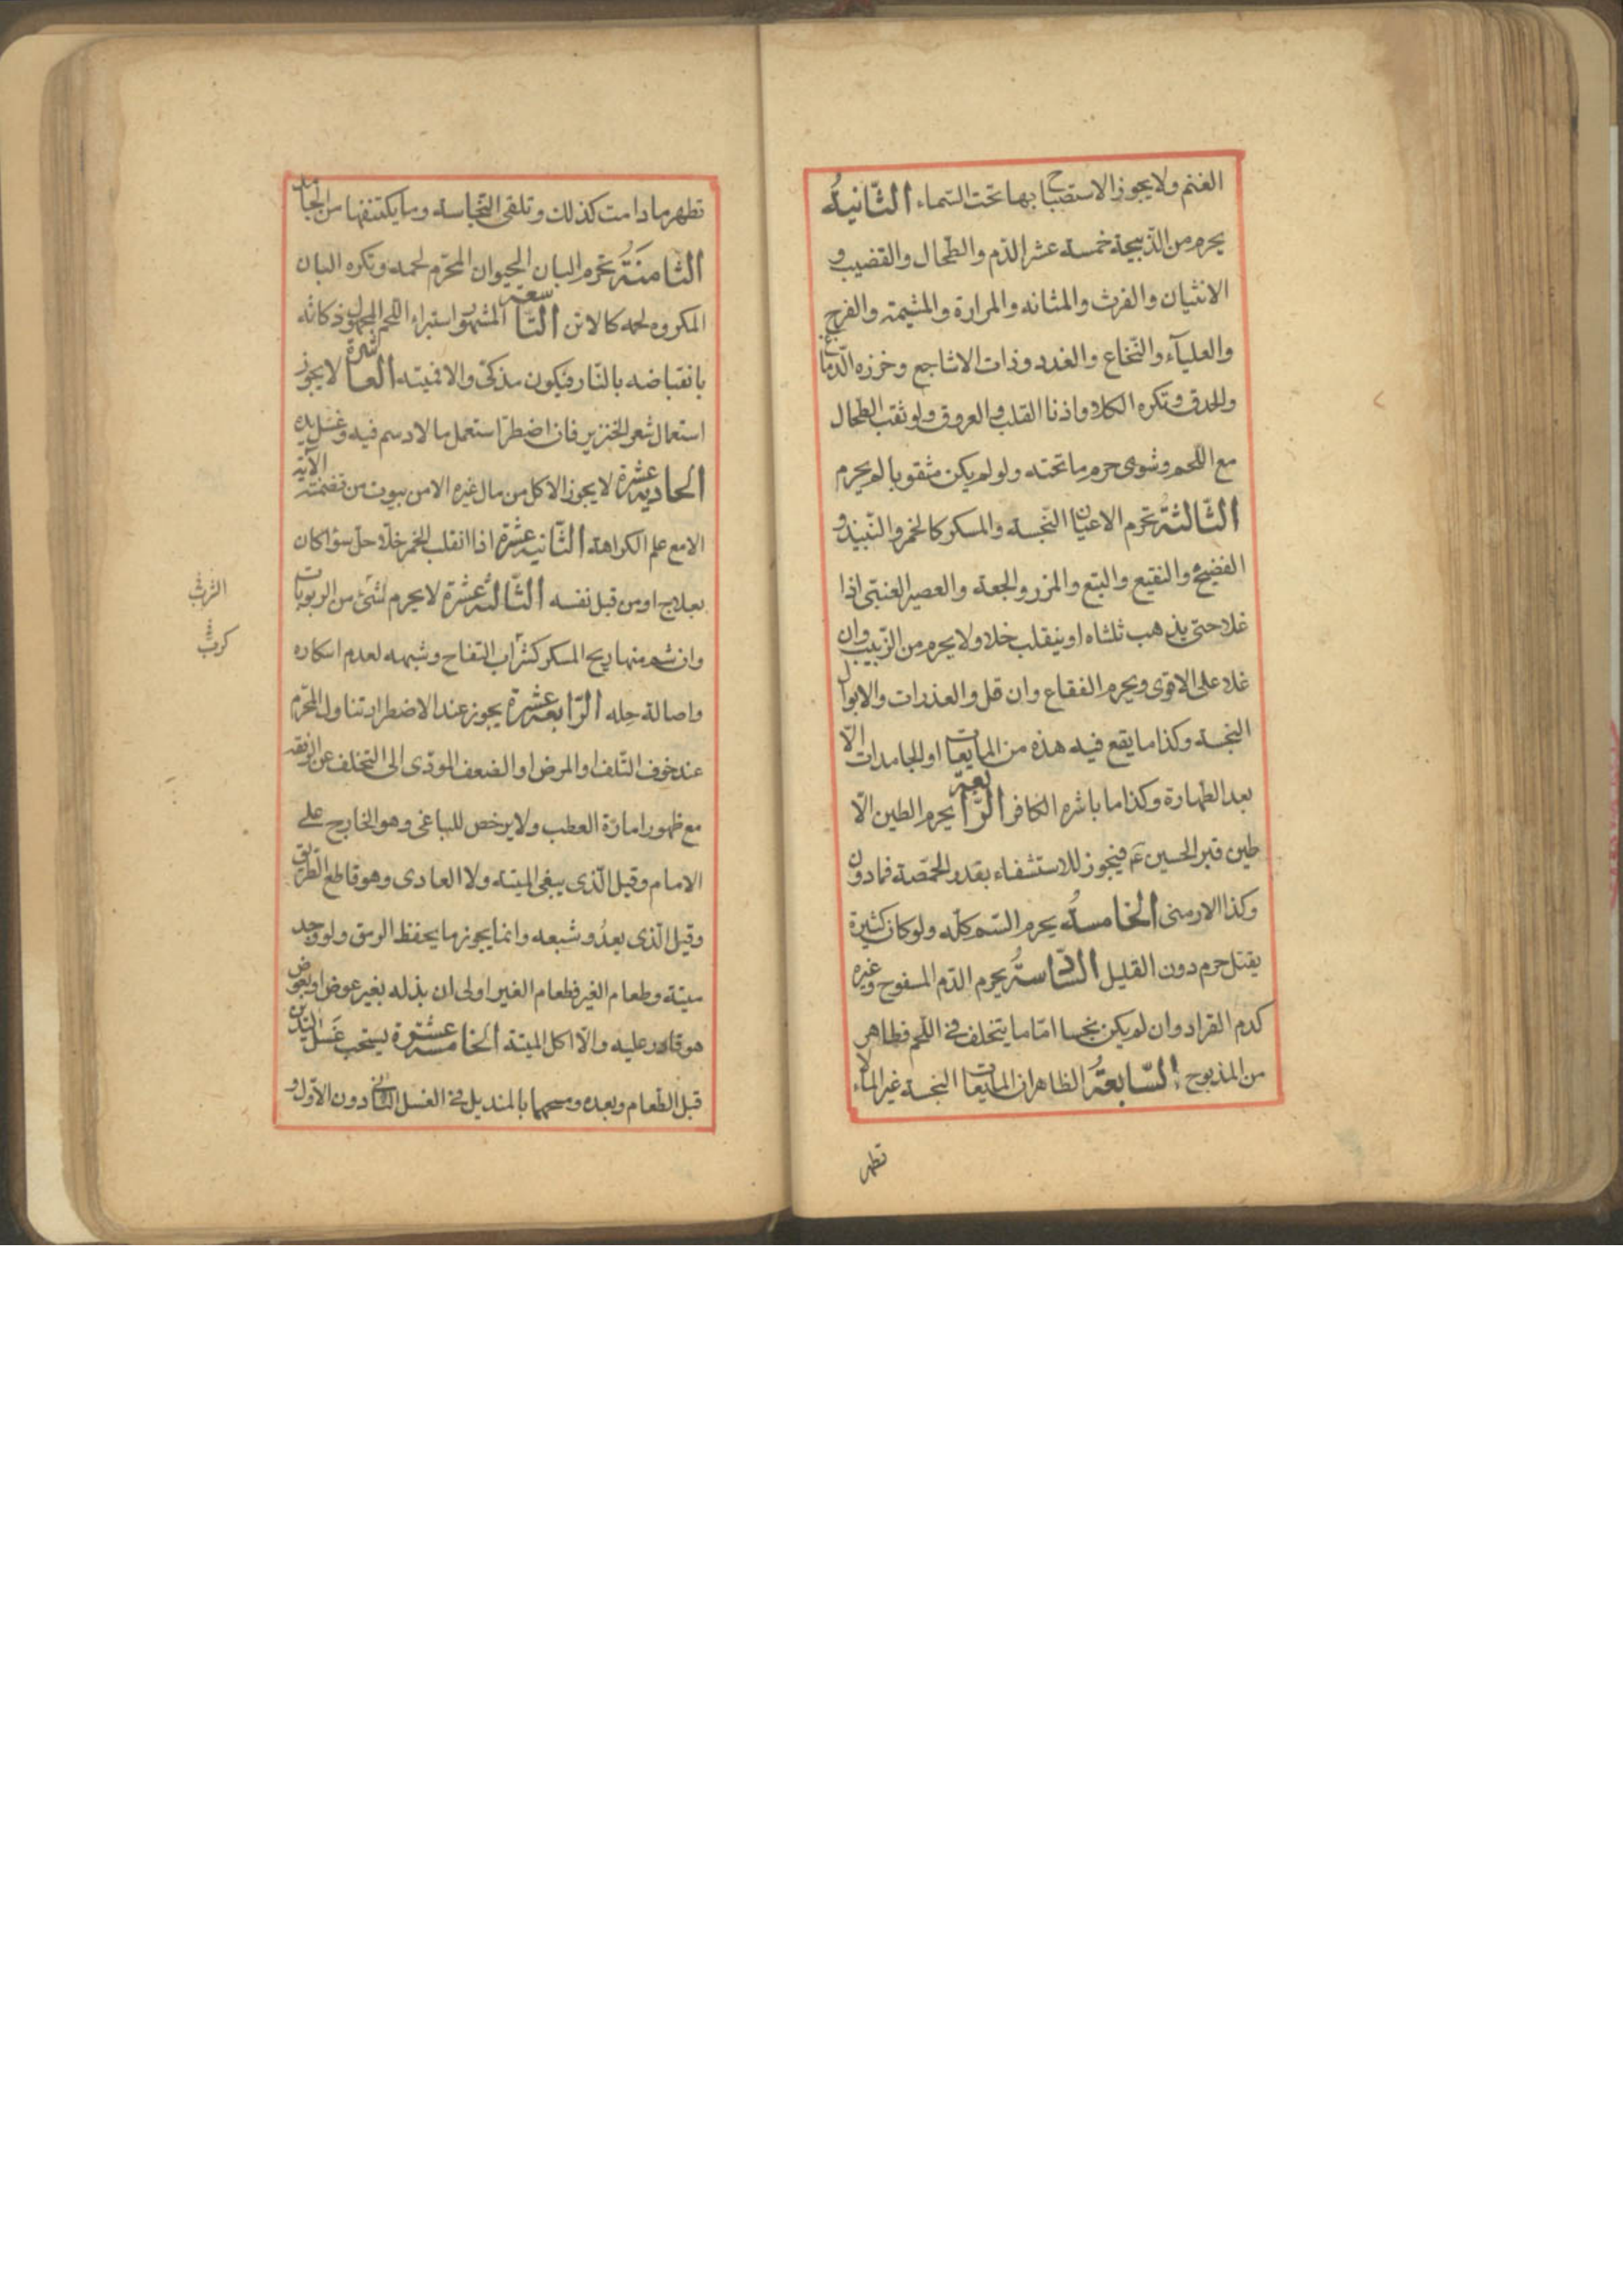 الغنم ولا يجوز الاستصباح بها تحت السّماء الثّانيةُ
يحرم من الذّبيحة خمسة عشر الدّم والطّحال والقضيب و
الانثيان والفرث والمثانه والمرارة والمشيمة والفرج
والعلبآء والنّخاع والغدد وذات الاشاجع وخرزه الدّماغ
والحدق وتكره الكلا واذنا القلب والعروق ولو ثقب الطحال
مع اللّحم وشوى حرم ما تحته ولو لم يكن مثقوبا لم يحرم
الثّالثةُ تحرم الاعيان النّجسة والمسكر كالخمر والنّبيذ و
الفضيخ والنقيع والبتع والمزر والجعة والعصير العنبّى اذا
غلا حتى يذهب ثلثاه او ينقلب خلا ولا يحرم من الزّبيب وان
غلا على الاقوى ويحرم الفقاع وان قل والعذرات والابوال
النجسة وكذا ما يقع فيه هذه من المايعات او الجامدات الّا
بعد الطهارة وكذا ما باشره الكافر الرّابعة يحرم الطين الّا
طين قبر الحسين ع فيجوز للاستشفاء بقدر الحمّصة فما دون
وكذا الارمنى الخامسةُ يحرم السّم كلّه ولو كان كثيرة
يقتل حرم دون القليل السّادسةُ يحرم الدّم المسفوح وغيره
كدم القراد وان لم يكن نجسا امّا ما يتخلف فى اللّحم فطاهر
من المذبوح السّابعةُ الظاهر ان المايعات النجسة غير الماء لا
تطهر
تطهر ما دامت كذلك وتلقى النّجاسة وما يكتنفها من الجامد
الثامنَةُ تحرم البان الحيوان المحرّم لحمه وتكره البان
المكروه لحمه كالاتن التّاسعة المشهور استبراء اللّحم المجهول ذكاته
بانقباضه بالنّار فيكون مذكّى والا فميتة العاشرة لا يجوز
استعمال شعر الخنزير فان اضطرّ استعمل ما لا دسم فيه وغسل يده
الحاديةعشرة لا يجوز الاكل من مال غيره الا من بيوت من تضمنته الآية
الا مع علم الكراهة الثّانيةعشرة اذا انقلب الخمر خلّا حل سواكان
بعلاج او من قبل نفسه الثّالثةعشرة لا يحرم لشئ من الربوبات
وان شم منها ريح المسكر كشراب التفاح وشبهه لعدم اسكاره
واصالة حِله الرّابعةعشرة يجوز عند الاضطرار تناول المحّرم
عند خوف التّلف او المرض او الضعف المودّى الى التخلف عن الرفقة
مع ظهور امارّة العطب ولا يرخص للباغى وهو الخارج على
الامام وقيل الّذى يبغى الميتة ولا العادى وهو قاطع الطّريق
وقيل الّذى يعدُو شبعه وانما يجوز ما يحفظ الرمق ولو وجد
ميتة وطعام الغير فطعام الغير اولى ان بذله بغير عوض او بعوض
هو قادر عليه والّا اكل الميتة الخامسةعشرة يستحب غَسل اليَدين
قبل الطّعام وبعده ومسحهما بالمنديل فى الغسل الثّانى دون الاوّل و